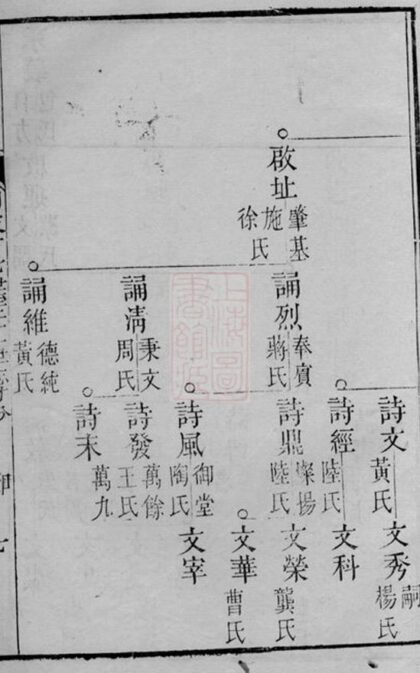 啟址
肇基
施
徐氏
誦烈
奉賔
蔣氏
誦清
秉文
周氏
誦維
德純
黃氏
詩文
黃氏
詩經
陸氏
詩鼎
燦揚
陸氏
詩風
御堂
陶氏
詩發
萬餘
王氏
詩末
萬九
文秀
嗣
楊氏
文科
文榮
龔氏
文華
曹氏
文宰
上海圖
書館藏
七